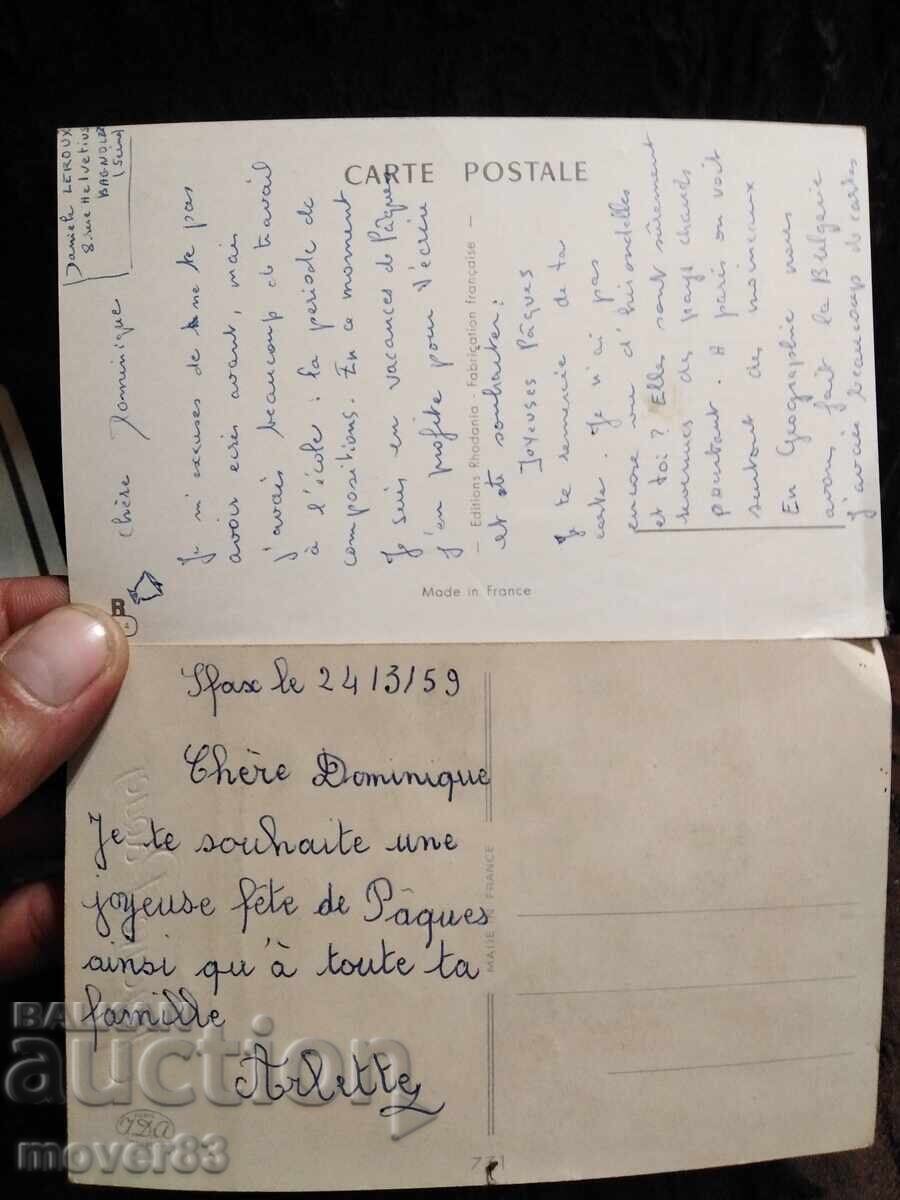 Danièle LEROUX
8 rue Helvétius
BAGNOLET
(Seine)
Chère Dominique
Je m'excuses de ne te pas
avoir ecris avant, mais
j'avais beaucoup de travail
à l'école : la periode de
compositions. En ce moment
Je suis en vacances de Pâques
j'en profite pour t'écrire
et te souhaiter :
Joyeuses Pâques
Je te remercie de ta
carte. Je n'ai pas
encore vu d'hirondelles
et toi ? Elles sont sûrement
revenues des pays chauds
pourtant. A paris on voit
surtout des moineaux
En Geographie nous
avons fait la Bulgarie
j'avais beaucoup de cartes
CARTE POSTALE
— Editions Rhodania - Fabrication française —
Made in France
R
Sfax le 24/3/59
Chère Dominique
Je te souhaite une
joyeuse fête de Pâques
ainsi qu'à toute ta
famille
Arlette
MADE IN FRANCE
PARIS
IDA
771
BALKAN
auction
mover83